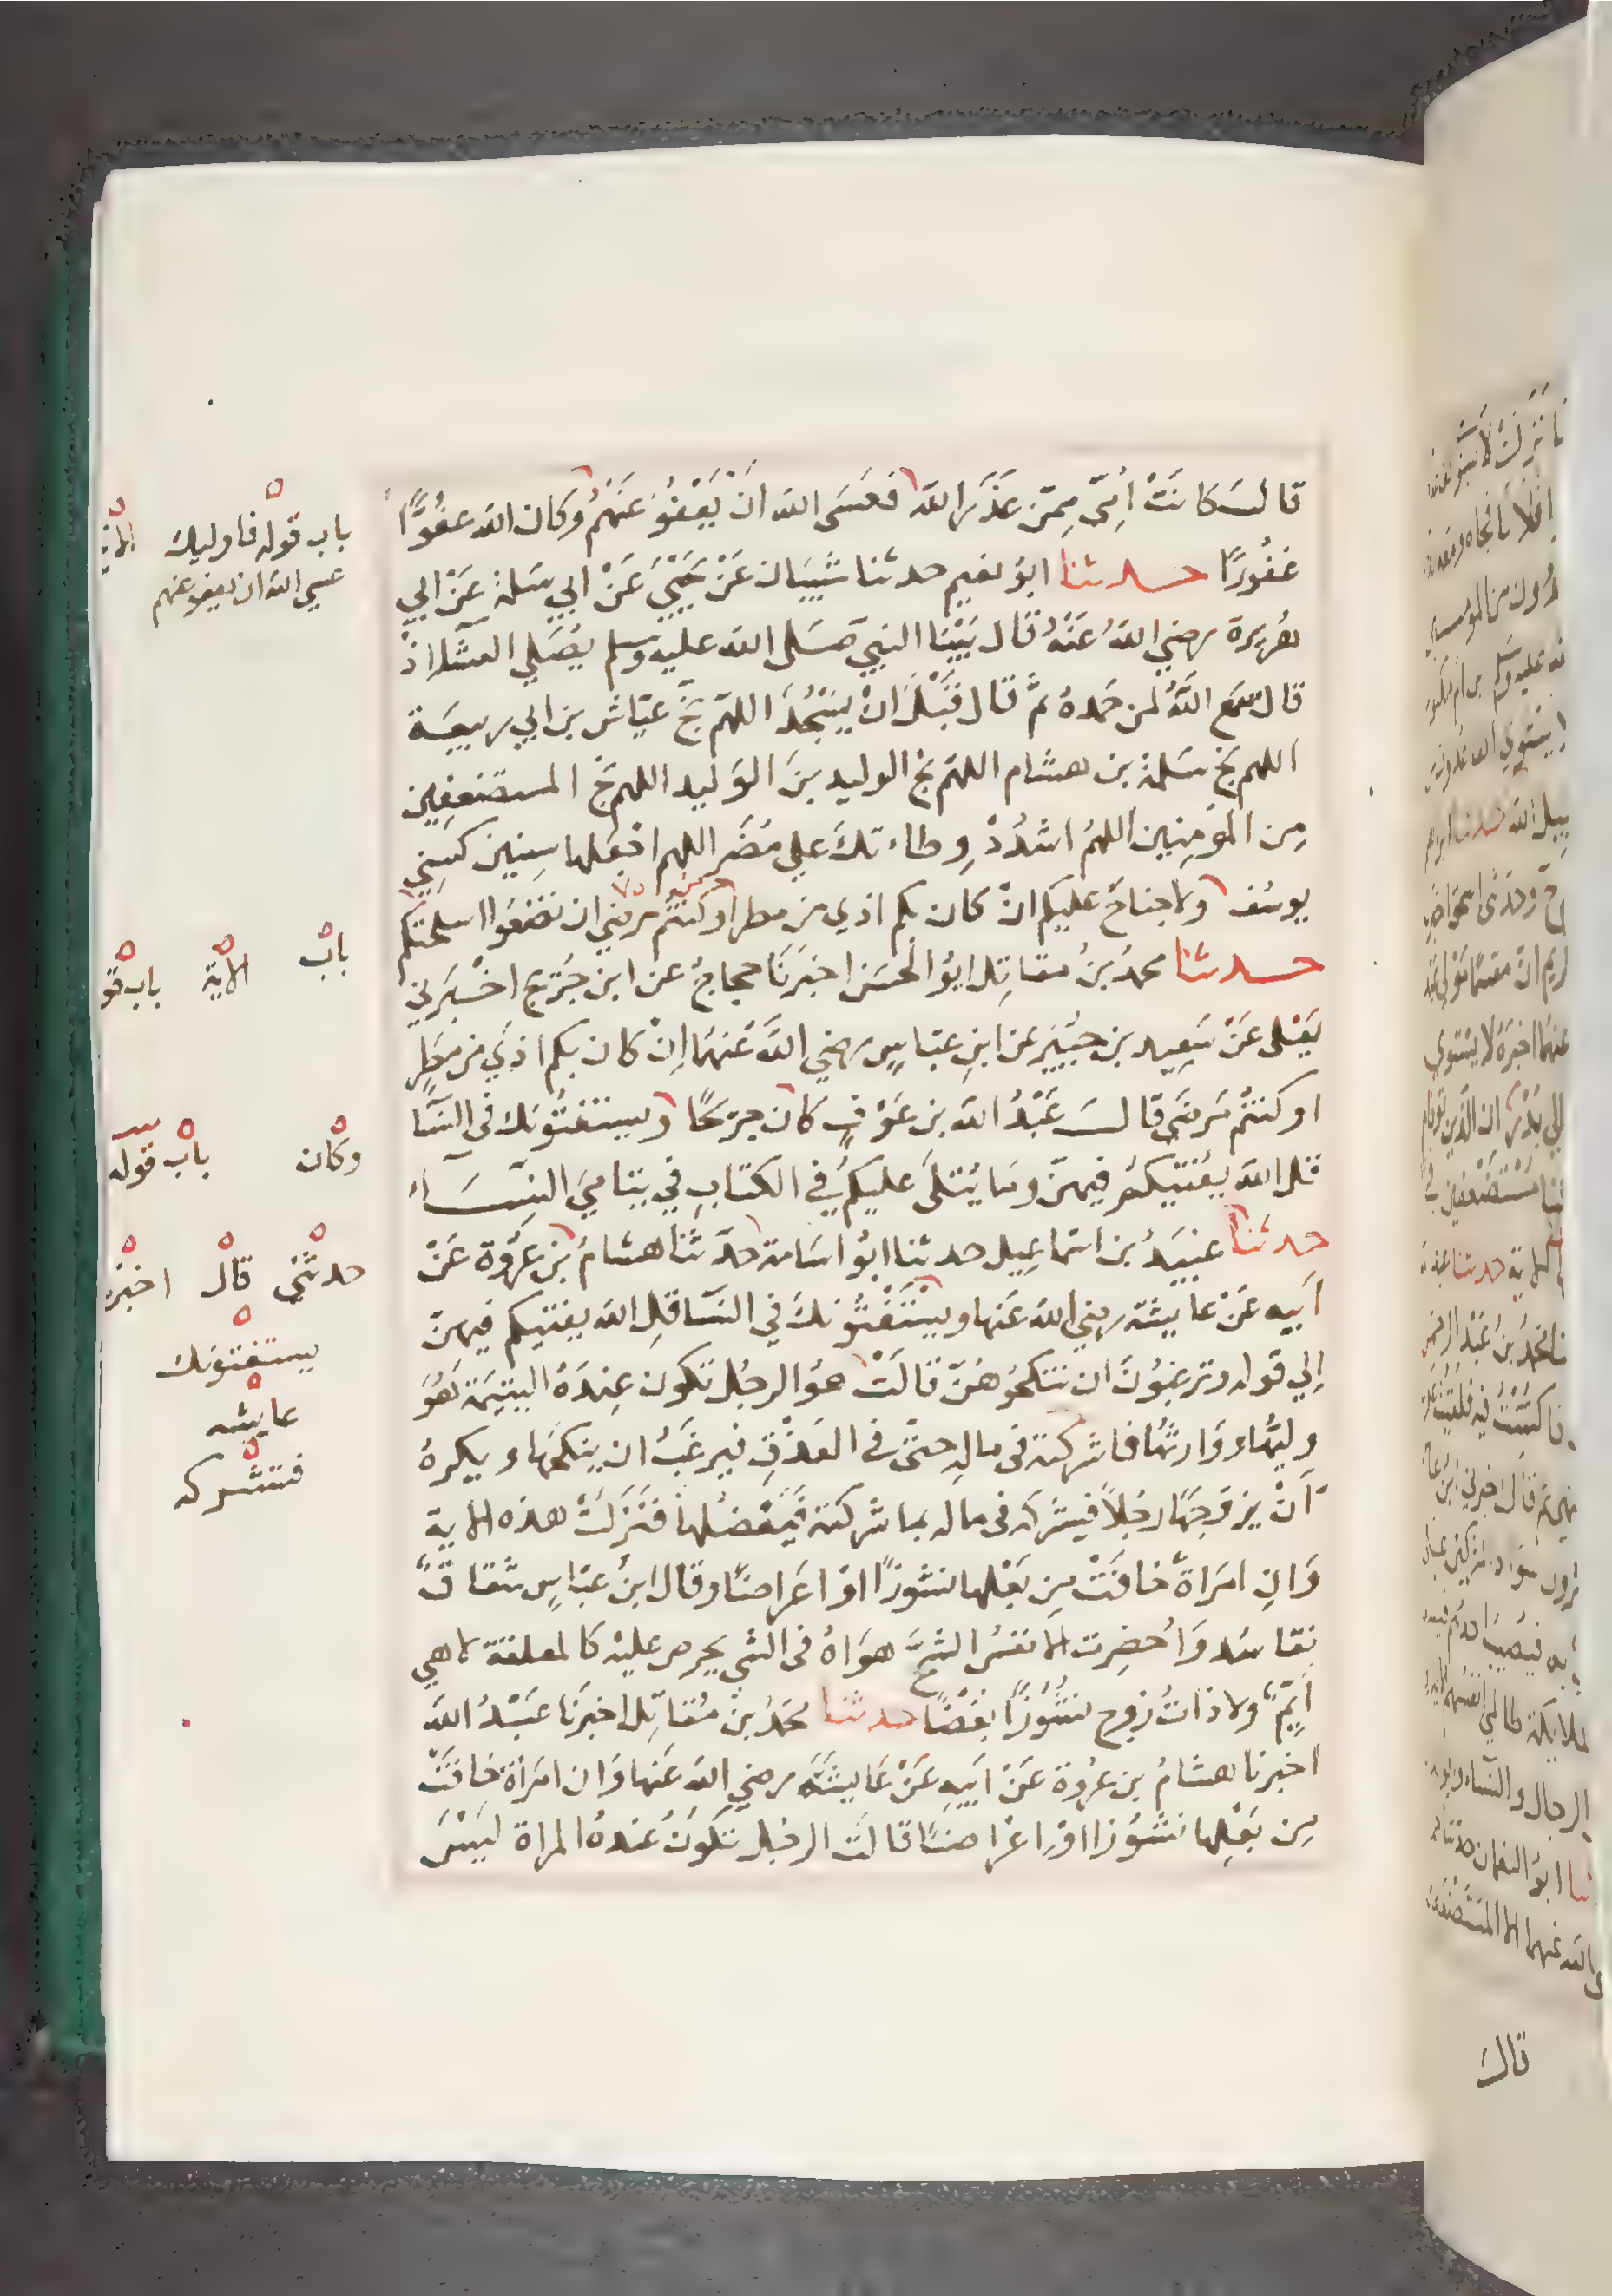 قالت كانَتْ أُمّي مِمّن عَذَرَ اللهُ فعسَى الله انْ يَعْفُوَ عَنْهُمْ وكان الله عفُوًّا
غفُورًا حدثنا ابوُ نعيم حدثنا شَيبَان عَنْ يَحْيَى عَنْ ابي سَلمة عَنْ ابي
هُرَيرة رضي اللهُ عَنْهُ قَال بَيْنَا النبيّ صَلى الله عليه وسلم يُصَلي العشَآ اذْ
قال سَمِعَ اللهُ لمن حَمدهُ ثمَّ قَال قَبْلَ انْ يَسْجُدَ اللهمّ نجِّ عيّاش بن ابي ربيعَة
اللهم نجّ سَلمة بن هشام اللهمّ نجّ الوليد بنَ الوَليد اللهم نجّ المستضعفِين
مِن المؤمِنِين اللهمُ اشدُدْ وطاءتكَ علي مُضَر اللهم اجْعَلها سِنين كَسِني
يوسُف ولا جناحَ عليكم انْ كان بكم اذي من مطر اوكنتم مرضي ان تضعُوا اسلحتكم
حدثنا محمدُ بنُ مقاتِل ابوُ الحسَن اخبَرنَا حجاجُ عن ابن جُرَيج اخْبَرَني
يَعْلى عَنْ سَعِيد بن جبَيرٍ عن ابنِ عبّاسٍ رضي اللهُ عَنْهمَا اِنْ كان بكم اذيً من مطرٍ
اوكنتُم مَرضَي قَالَ عَبْدُ الله بن عَوْفٍ كانَ جرَيحًا ويستفتُونك في النسَآ
قل الله يفْتيكم فيهنّ ومَا يُتلَى عليكُم في الكتابِ في يتامي النسَاءِ
حدثنا عبيدُ بن اسمَاعِيل حدثنا ابوُ اسَامة حدّثنا هشامُ بن عُرْوَة عَنْ
ابَيه عَنْ عايشة رضي الله عَنها ويستَفْتُونكَ في النسَآ قلِ الله يفتيكم فيهنّ
الي قوله وترغبُونَ ان تنكحُوهُنّ قَالَتْ هوُ الرجُل تكون عِندهُ اليتِيمَة هُوَ
وليّها ووَارثُها فاشركته في مالِه حتّى في العَذْقِ فيرغَبُ ان ينكحَها ويكرهُ
اَنْ يزوجَهَا رجُلاً فيشْرَكه في ماله بما شركته فيَعْضُلها فنَزلَتْ هذه الاية
وَانِ امَرَاةٌ خافَتْ مِن بَعْلها نشوزًا اوْ اعراضًا وقال ابنُ عبّاسٍ شقاقٌ
تفاسُد وَاُحضِرت الانفسُ الشحّ هوَاهُ في الشي يحرص عليْه كالمعلقة لا هي
اَيّمٌ ولا ذاتُ زوج نشُوزًا بغضًا حدثنا محمّدُ بنُ مُقاتِل اخبرَنَا عَبْدُ الله
اخبرنا هشامُ بن عرُوة عَنْ ابَيهِ عَنْ عَايشَة رضي الله عَنها وَان امرَأة خافَتْ
مِن بَعْلِها نشُوزا اوْ اعْراضًا قالَت الرجُل تكونُ عندهُ المراة ليسَ
باب قوله فاوليك
عسي الله ان يعفو عنهم
باب الاية باب قو
وكان باب قوله
حدثني قال اخبرني
يستفتونك
عايشه
فتشركه
قال